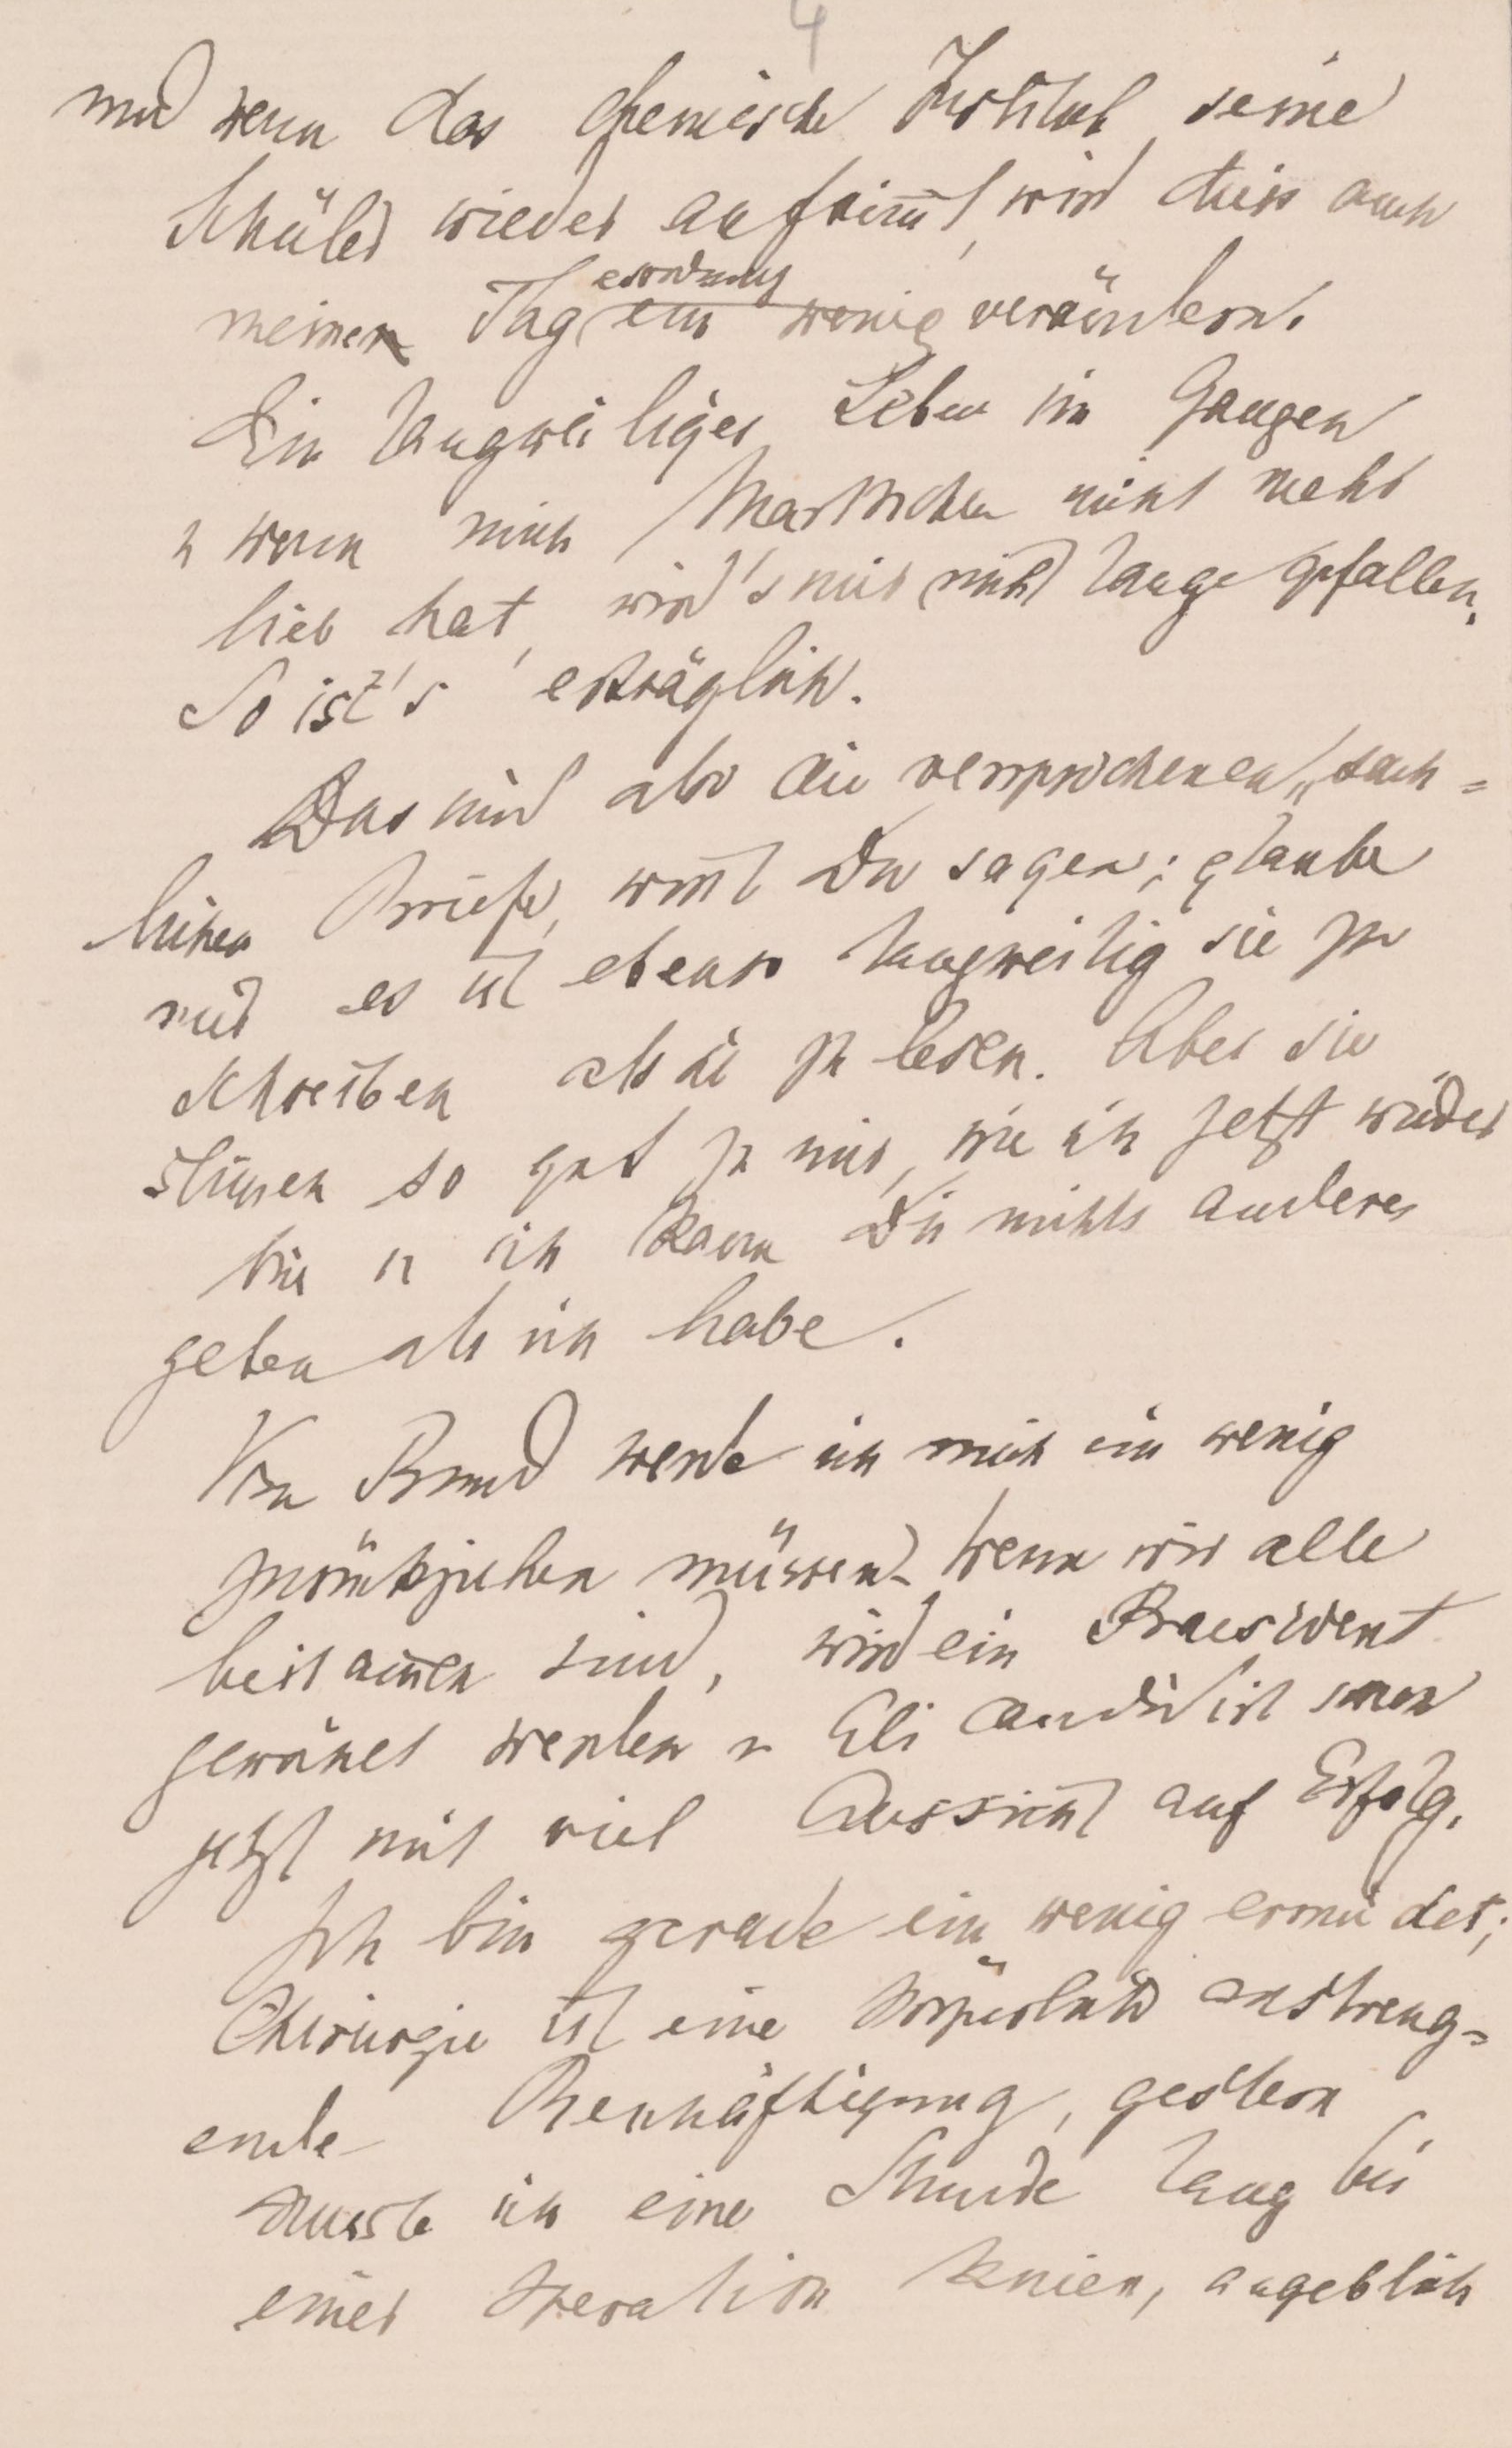 4
und wenn das chemische Institut seine
Schüler wieder aufnim̄t, wird dies auch
esordnung
meinen Tag ein wenig verändern.
Ein langweiliges Leben im Ganzen
u wenn mich Marthchen nicht mehr
lieb hat, wird's mir nicht lange gefallen.
So ist's erträglich.
Das sind also die versprochenen „sach=
lichen Briefe, wirst Du sagen; glaube
mir es ist ebenso langweilig sie zu
schreiben als sie zu lesen. Aber sie
stim̄en so gut zu mir, wie ich jetzt wieder
bin u ich kann Dir nichts anderes
geben als ich habe.
Vom Bund werde ich mich ein wenig
zurückziehen müssen. Wenn wir alle
beisam̄en sind, wird ein Praesident
gewählt werden u Eli candidirt schon
jetzt mit viel Aussicht auf Erfolg.
Ich bin gerade ein wenig ermüdet;
Chirurgie ist eine körperlich anstreng=
ende Beschäftigung, gestern
musste ich eine Stunde lang bei
einer Operation knien, angeblich